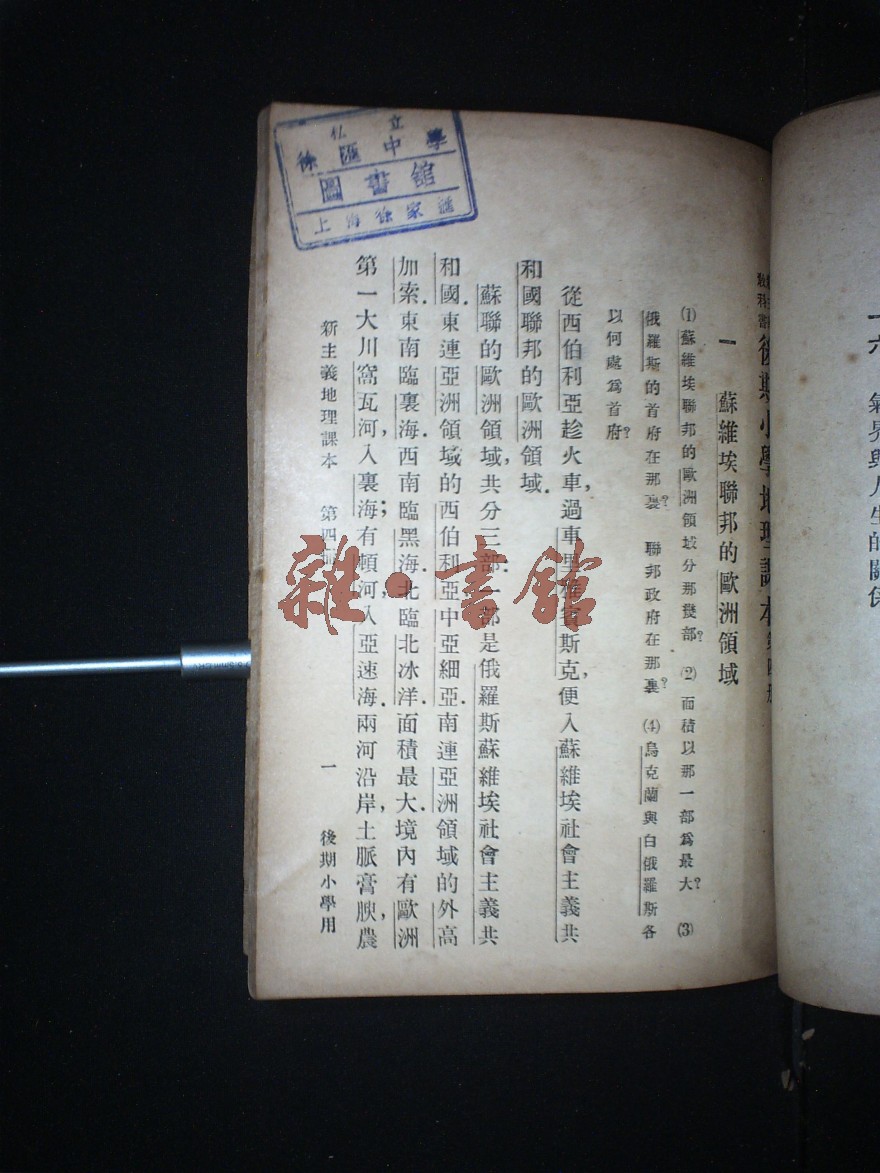 十六 氣界與人生的關係
教科書 後期小學地理課本 第四册
一 蘇維埃聯邦的歐洲領域
(1)蘇維埃聯邦的歐洲領域分那幾部? (2)面積以那一部為最大? (3)
俄羅斯的首府在那裏? 聯邦政府在那裏? (4)烏克蘭與白俄羅斯各
以何處為首府?
從西伯利亞趁火車,過車里雅賓斯克,便入蘇維埃社會主義共
和國聯邦的歐洲領域.
蘇聯的歐洲領域,共分三部.一部是俄羅斯蘇維埃社會主義共
和國.東連亞洲領域的西伯利亞中亞細亞.南連亞洲領域的外高
加索.東南臨裏海.西南臨黑海.北臨北冰洋.面積最大.境內有歐洲
第一大川窩瓦河,入裏海;有頓河,入亞速海.兩河沿岸,土脈膏腴,農
新主義地理課本 第四册 一 後期小學用
私立
徐匯中學
圖書館
上海徐家匯
雜·書館